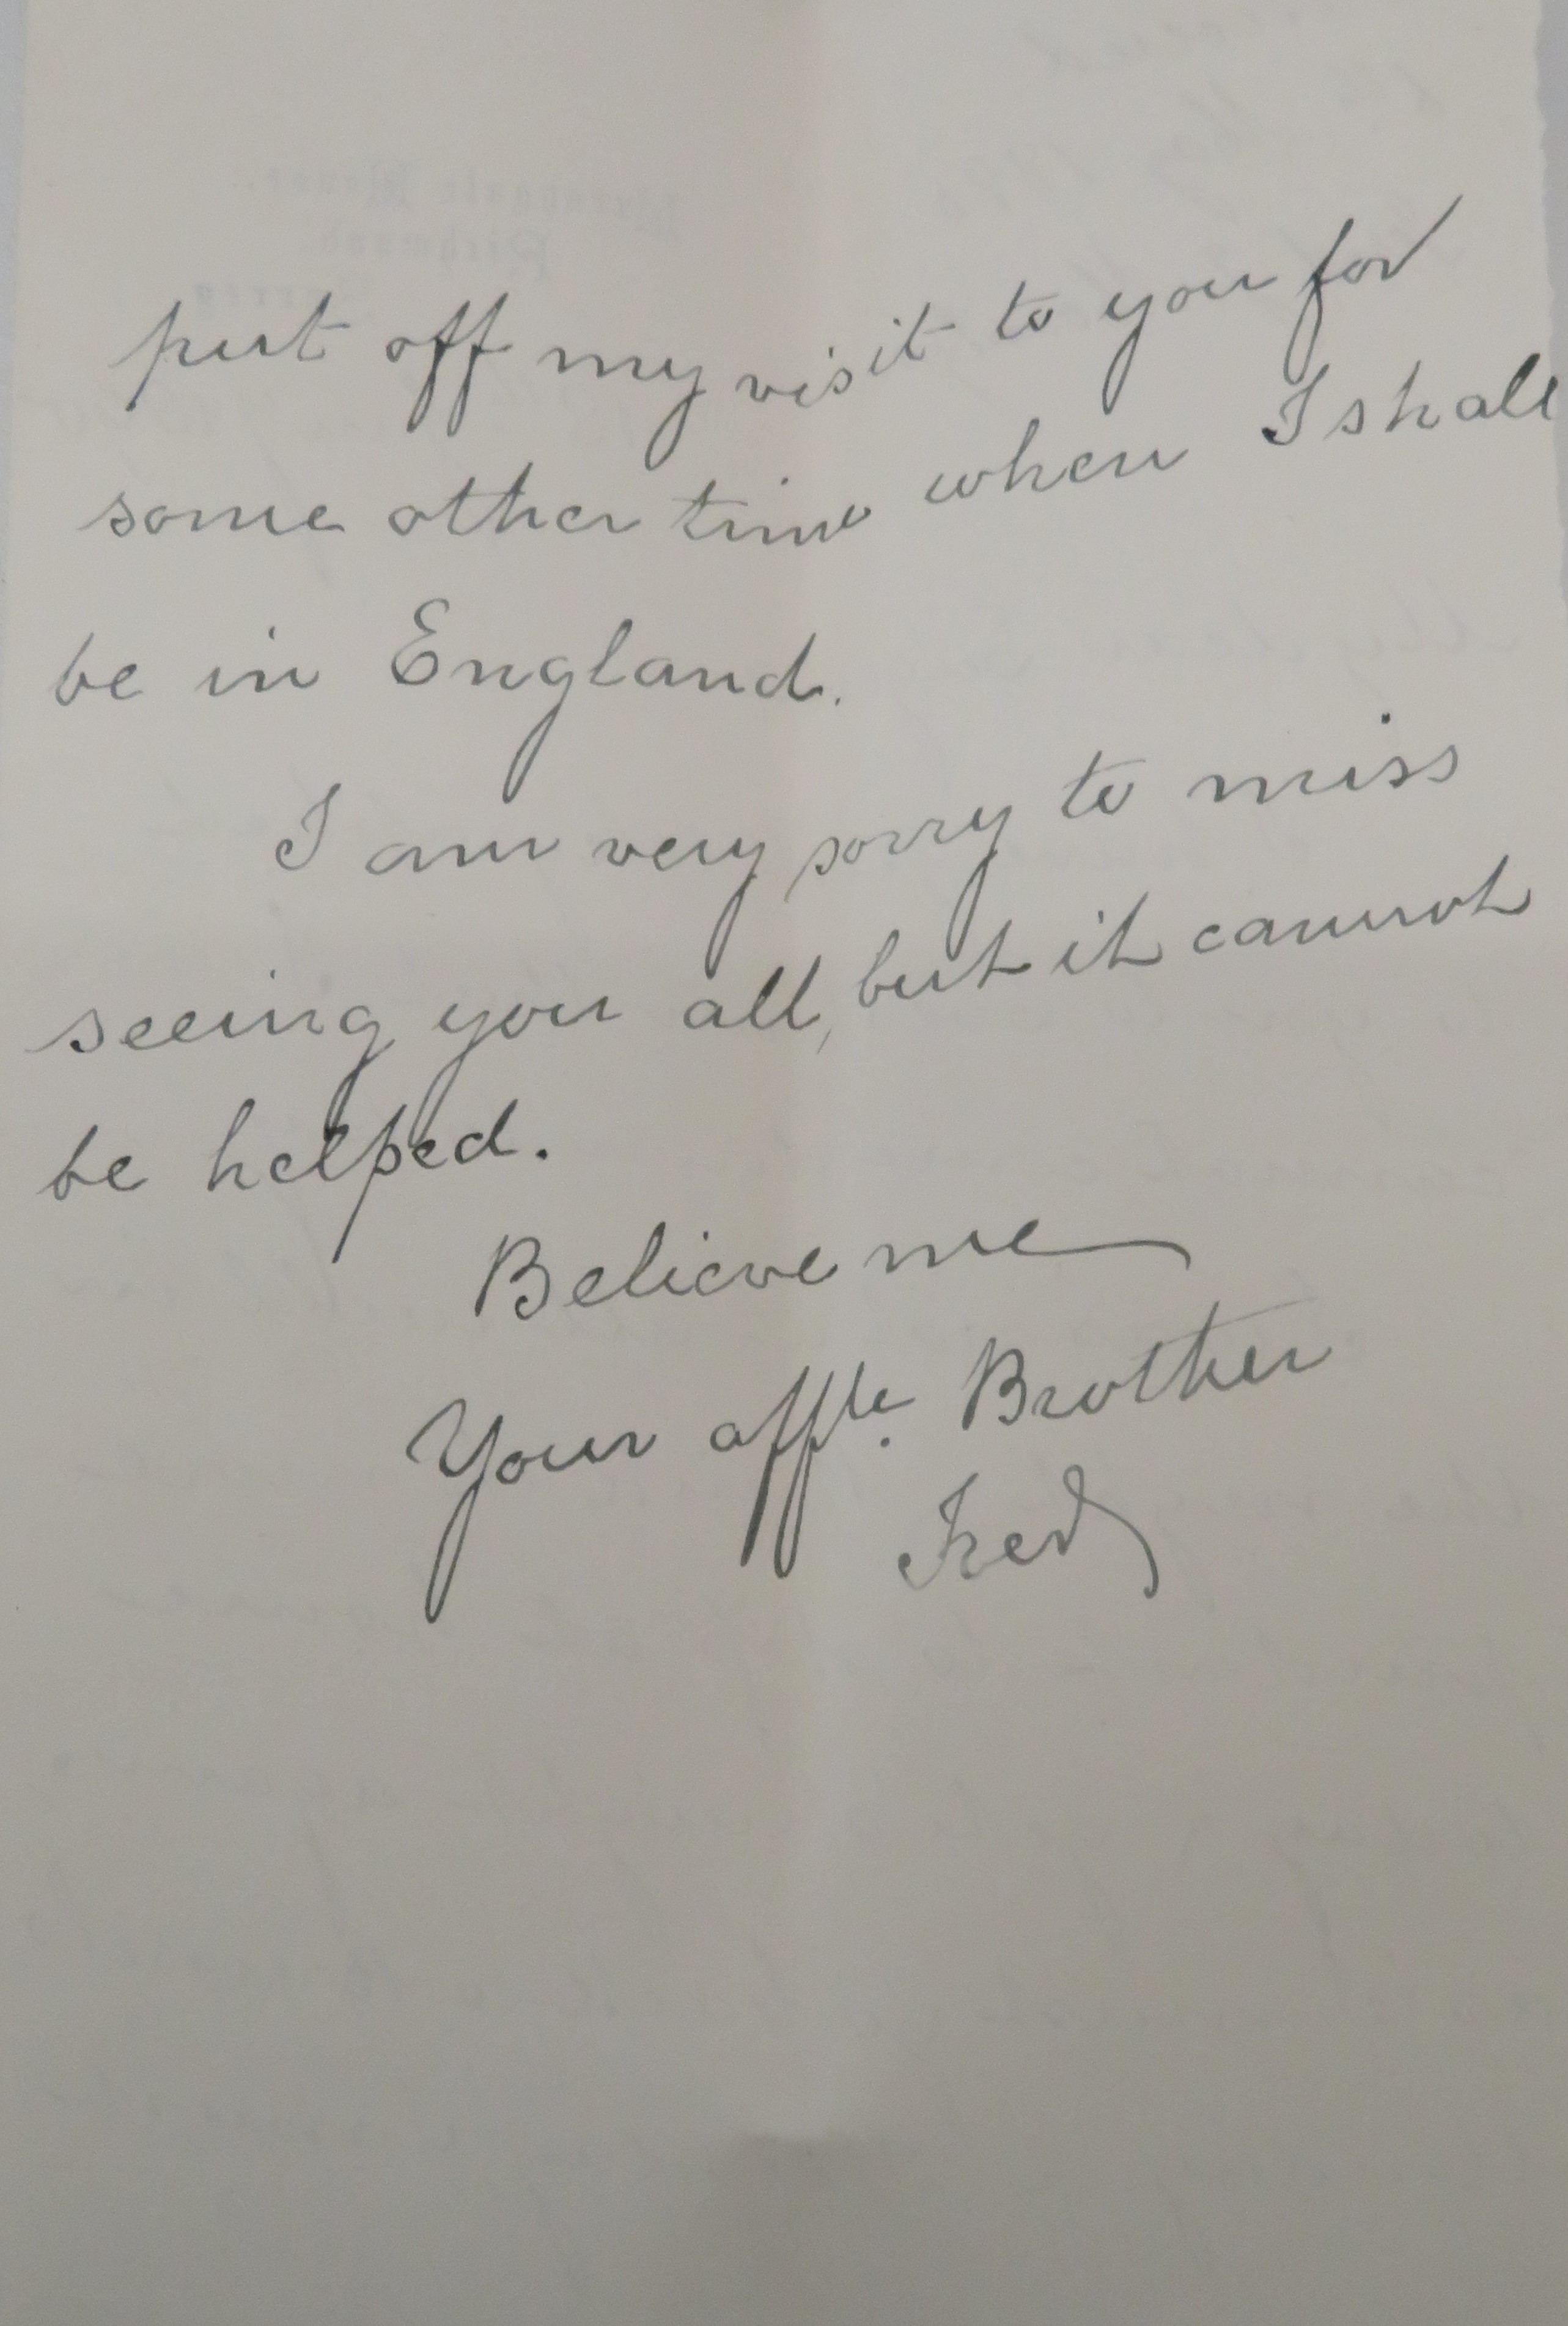 put off my visit to you for
some other time when I shall
be in England.
I am very sorry to miss
seeing you all, but it cannot
be helped.
Believe me
Your affte. Brother
Fred